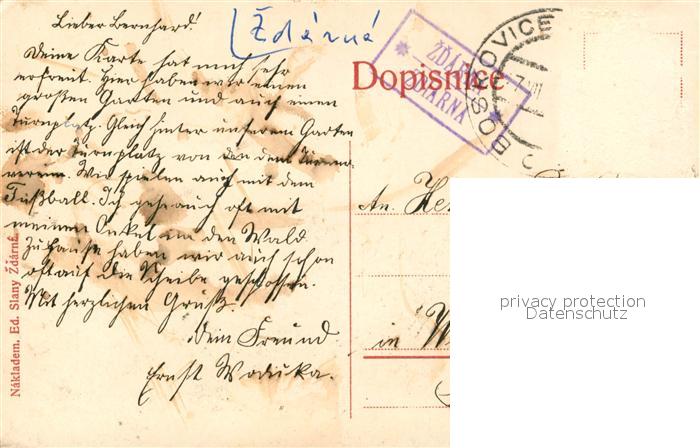 Lieber Bernhard!
Deine Karte hat mich sehr
erfreut. Hier haben wir einen
großen Garten und auch einen
Turnplatz. Gleich hinter unserem Garten
ist der Turnplatz von dem Turn-
verein. Wir spielen auch mit dem
Fußball. Ich gehe auch oft mit
meinem Onkel in den Wald.
Zuhause haben wir auch schon
oft auf die Scheibe geschossen.
Mit herzlichen Gruß.
Dein Freund
Ernst Woduka.
Nákladem. Ed. Slaný Žďárná.
Ždárná
Dopisnice
ŽĎÁRNÁ
ŽDIARNA
BOSKOVICE
An. He
in W
privacy protection
Datenschutz